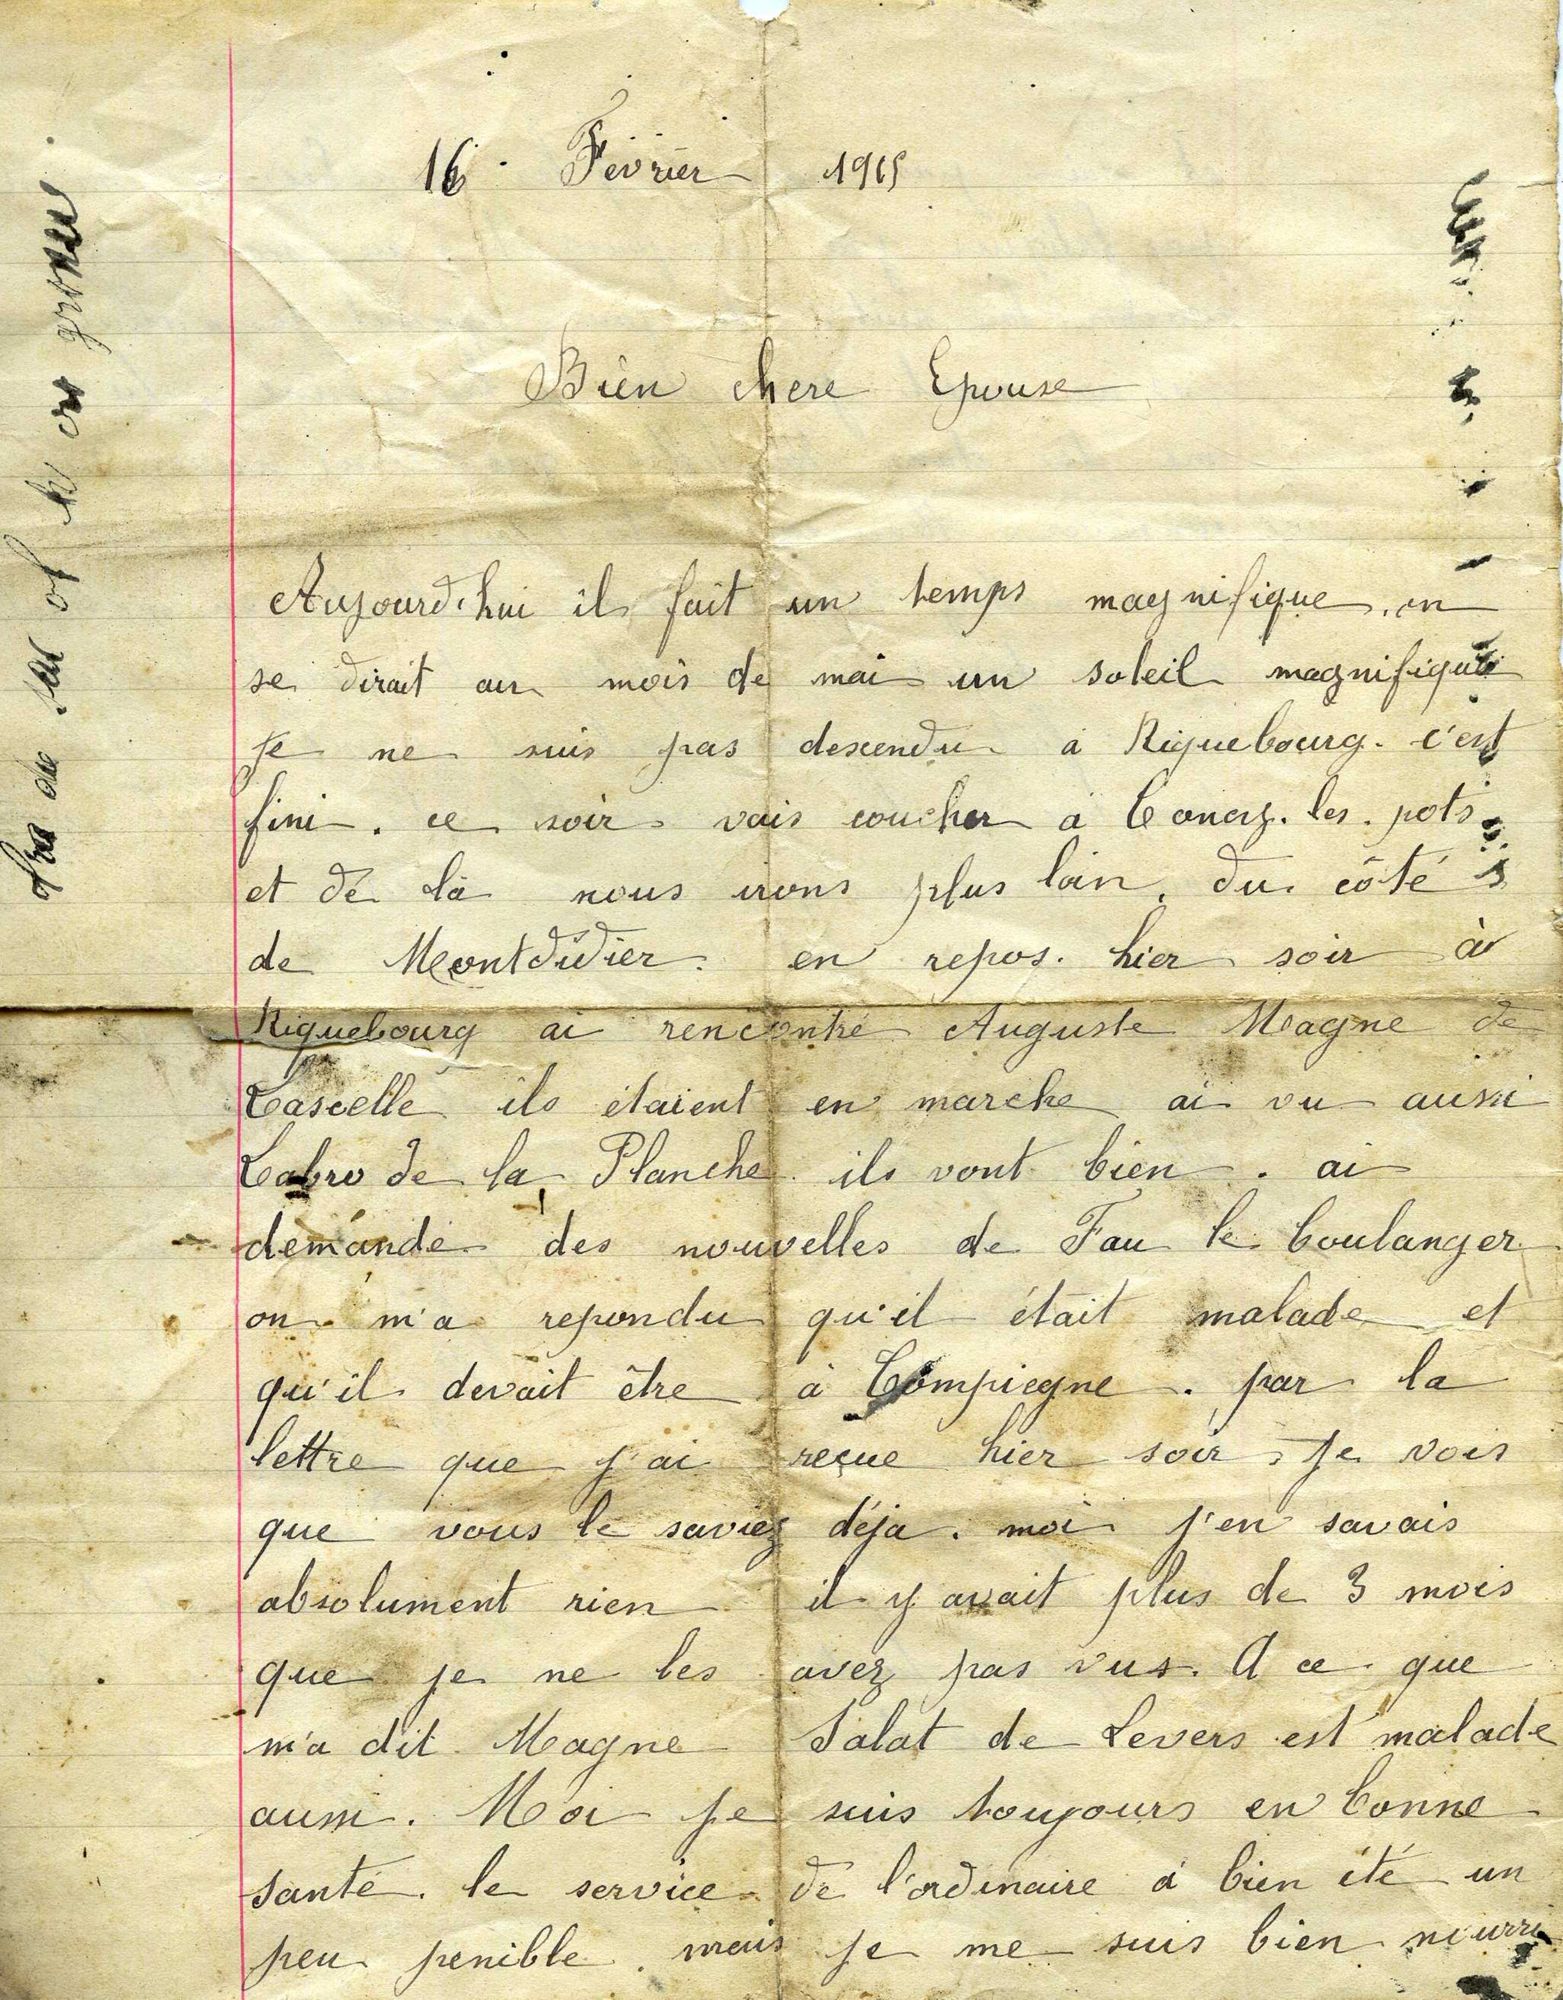 16 Fevrier 1915
Bien chere Epouse
Aujourd'hui il fait un temps magnifique. on
se dirait au mois de mai un soleil magnifique
je ne suis pas descendu a Riquebourg. c'est
fini. ce soir vais coucher a Conchy. les. pots
et de là nous irons plus loin. du côté
de Montdidier. en repos. hier soir à
Riquebourg ai rencontré Auguste Magne de
Cascelle ils étaient en marche ai vu aussi
Cabro de la Planche. ils vont bien. ai
demandé des nouvelles de Fau le boulanger
on m'a repondu qu'il était malade et
qu'il devait être a Compiegne. par la
lettre que j'ai reçue hier soir, je vois
que vous le saviez déja. moi j'en savais
absolument rien il y avait plus de 3 mois
que je ne les avez pas vus. A ce que
m'a dit Magne Salat de Levers est malade
aussi. Moi je suis toujours en bonne
santé. le service de l'ordinaire a bien été un
peu penible. mais je me suis bien nourri